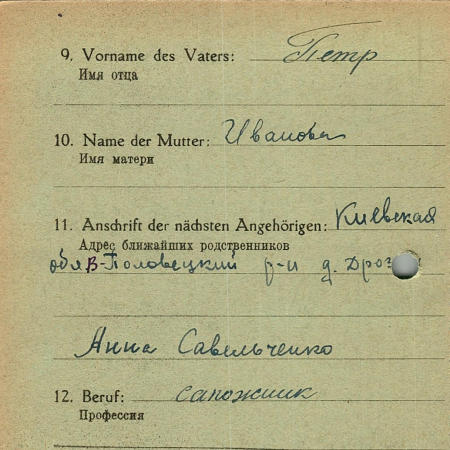 9. Vorname des Vaters: Петр
Имя отца
10. Name der Mutter: Иванова
Имя матери
11. Anschrift der nächsten Angehörigen: Киевская
Адрес ближайших родственников
обл В-Половецкий р-н д.
Анна Савельченко
12. Beruf: сапожник
Профессия